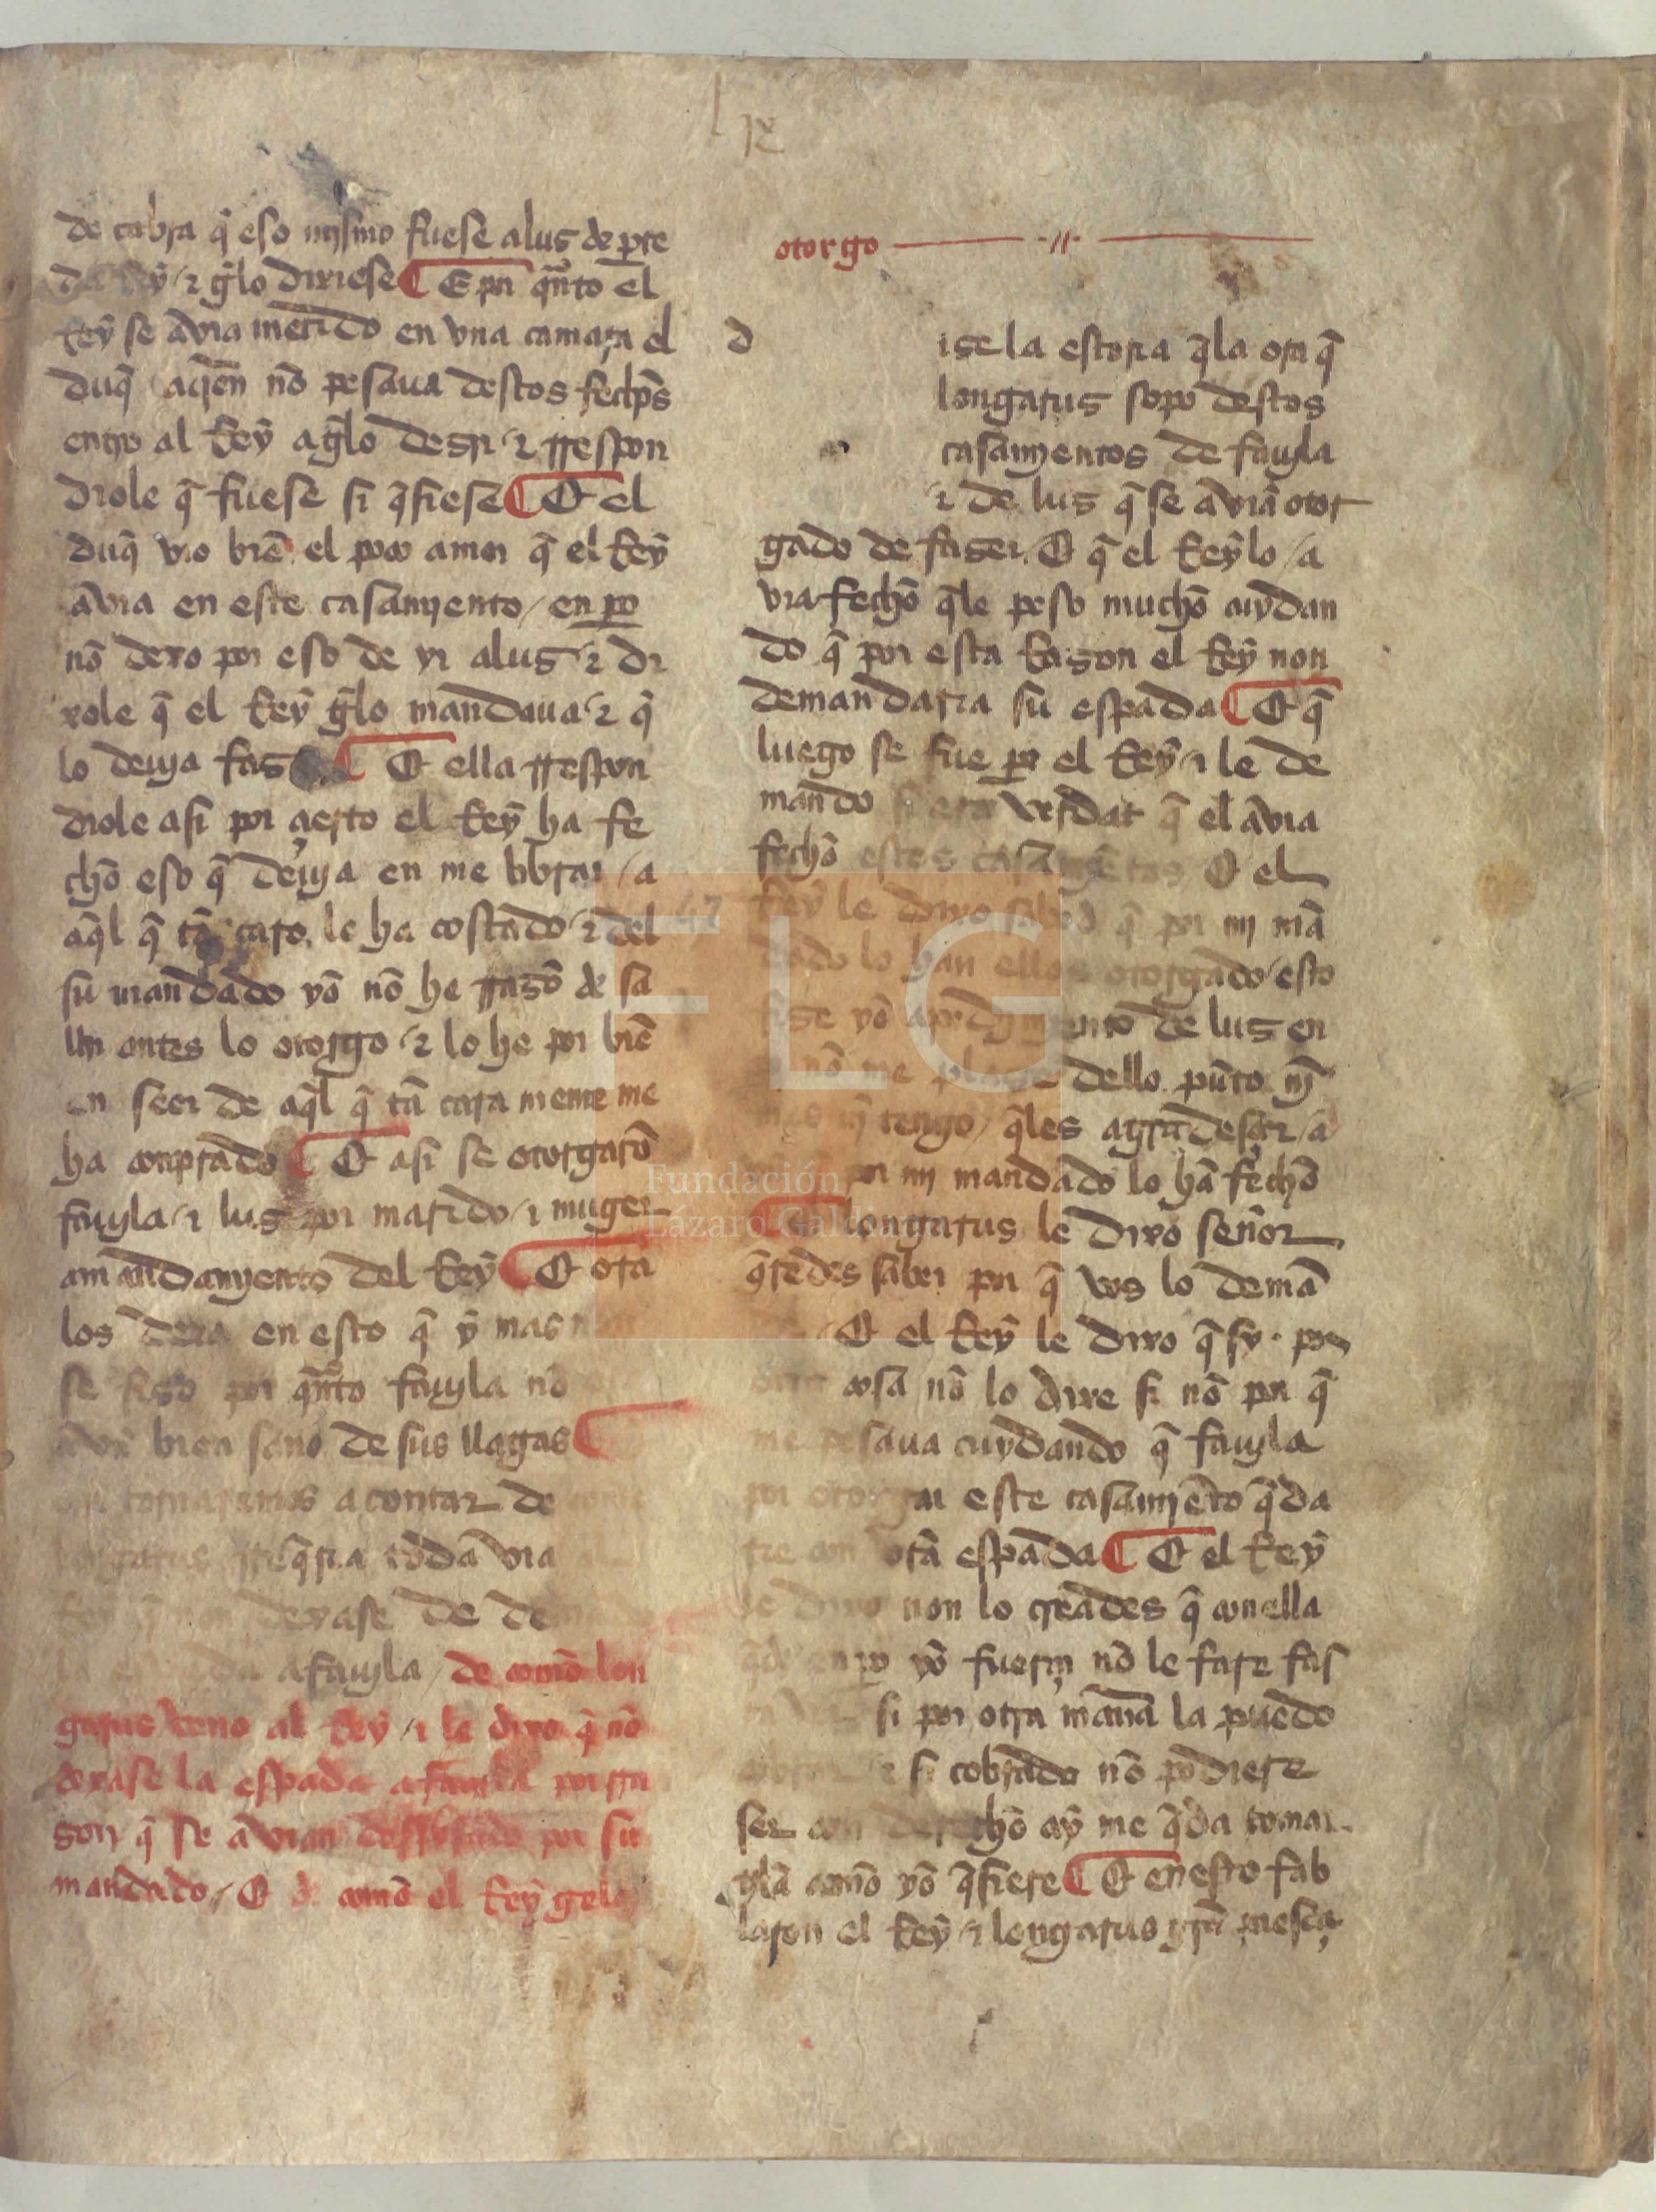 lix
de cabra q̃ eso mjsmo fuese a lus de p̱te
del rrey / ⁊ gẽlo dixiese ¶ E por q̃nto el
Rey se avia metido en vna camara el
duq̃ aq̃en nõ pesaua destos fechos
entro al Rey a gẽlo desir ⁊ rrespon
diole q̃ fuese si q̃siese ¶ E el
duq̃ vio biẽ el poco amor q̃ el Rey
avia en este casamjento / enp̱o
nõ dexo por eso de yr a lus ⁊ di
xole q̃ el Rey gẽlo mandaua / ⁊ q̃
lo deuja fas ¶ E ella rrespon
diole asi por çierto el Rey ha fe
cho eso q̃ deuja en me librar / a
aq̃l q̃ tã caro le ha costado / ⁊ del
su mandado yo nõ he rrasõ de sa
lir antes lo otorgo / ⁊ lo he por biẽ
en seer de aq̃l q̃ tã cara mente me
ha conprado ¶ E asi se otorgarõ
fauila / ⁊ lus por marido / ⁊ muger
a mandamjento del Rey ¶ E ora
los dexa en esto q̃ y mas
se fiso por q̃nto fauila nõ
bien sano de sus llagas ¶
tornaremos a contar de
longarus rreq̃ria toda via
Rey q̃ non dexase de de
la a fauila / de como lon
garus veno al Rey / ⁊ le dixo q̃ nõ
dexase la espada a fauila por rra
son q̃ se avian desposado por su
mandado / E de como el Rey gelo
otorgo
dise la estoria q̃ la ora q̃
longarus sopo destos
casamjentos de fauila
⁊ de lus q̃ se aviã otor
gado de faser. E q̃ el Rey lo / a
via fecho q̃ le peso mucho cuydan
do q̃ por esta Rason el Rey non
demandaria su espada ¶ E q̃
luego se fue p̱a el Rey / ⁊ le de
mando si era verdat q̃ el avia
fecho estos casamjẽtos E el
Rey le dixo sabed q̃ por mj mã
dado lo han ellos otorgado / esto
fise yo a pedimjento de lus en
nõ me plase dello. pũto nj̃
mas nj̃ tengo / q̃ les agradesçer / a
por mj mandado lo hã fecho
¶ E longarus le dixo señor
q̃redes saber por q̃ vos lo demã
E el Rey le dixo q̃ sy. por
otra cosa nõ lo dixe si nõ por q̃
me pesaua cuydando q̃ fauila
por otorgar este casamjẽto q̃da
rie con vr̃a espada ¶ E el Rey
le dixo non lo creades q̃ con ella
q̃de enp̱o yo fuerça nõ le fare fas
ta si por otra manã la puedo
cobrar ⁊ si cobrada nõ podiere
ser con derecho ay me q̃da tomar
gela como yo q̃siere ¶ E en esto fab
laron el Rey / ⁊ longarus grã pieça